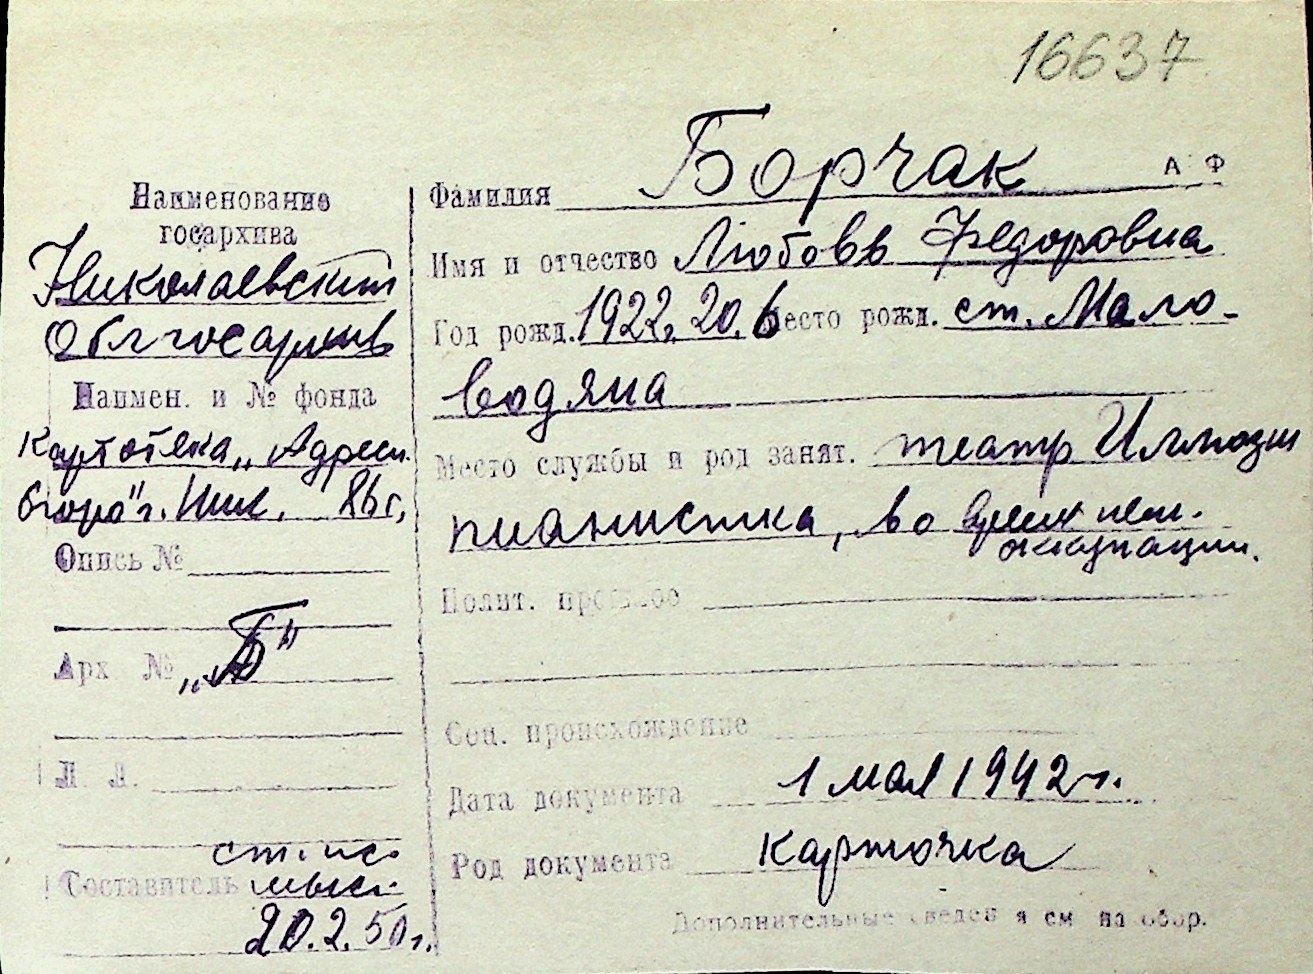 16637
Наименование
госархива
Николаевский
Облгосархив
Наимен. и № фонда
Картотека „Адресн.
бюро" г. Ник. 86 г.
Опись №
Арх №„Б"
Л. Л.
Составитель
20.2.50 г.
А Ф
Фамилия Борчак
Имя и отчество Любовь Федоровна
Год рожд. 1922, 20.6 Место рожд. ст. Мало-
водяна
Место службы и род занят. театр Иллюзии
пианистка, во время нем.
оккупации.
Полит. прошлое
Соц. происхождение
Дата документа 1 мая 1942 г.
Род документа карточка
Дополнительные сведен я см на обор.